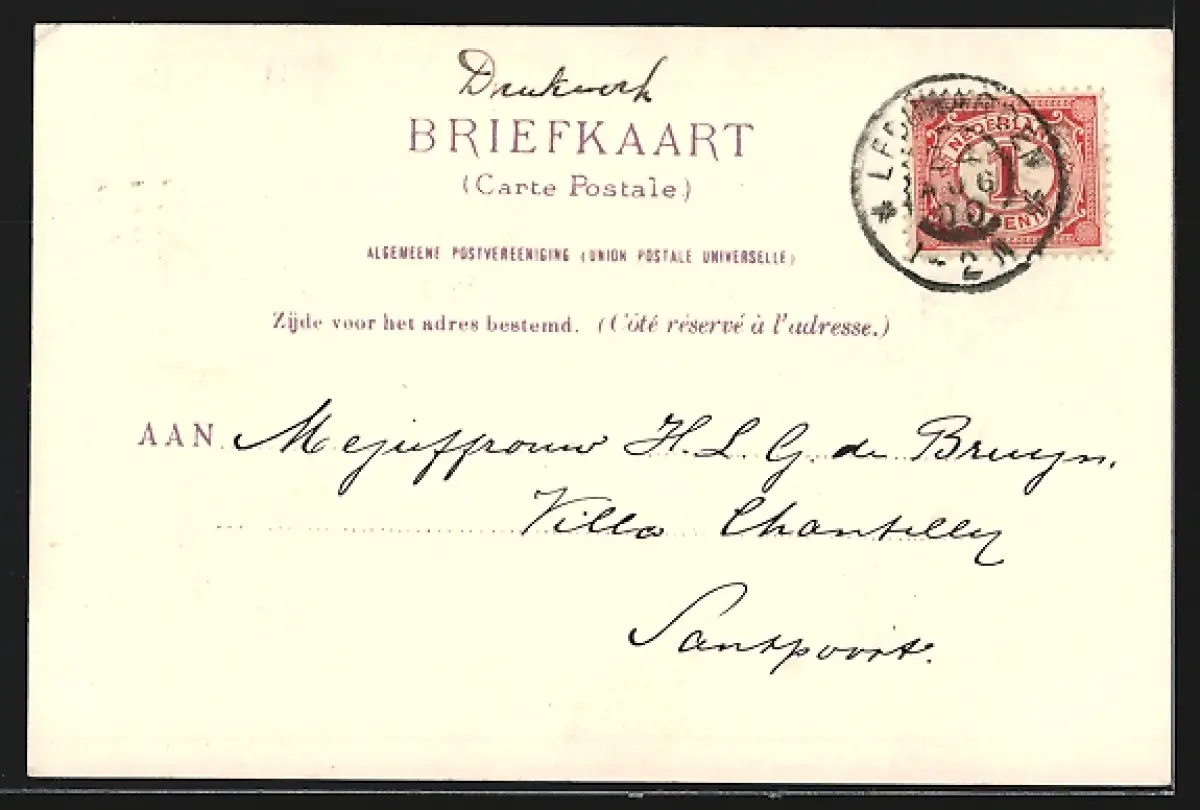 Drukwerk
BRIEFKAART
(Carte Postale.)
ALGEMEENE POSTVEREENIGING (UNION POSTALE UNIVERSELLE)
Zijde voor het adres bestemd. (Côté réservé à l'adresse.)
NEDERLAND
1
CENT
1-2N
AAN Mejuffrouw H. L. G. de Bruyn.
Villa Chantilly
Santpoort.